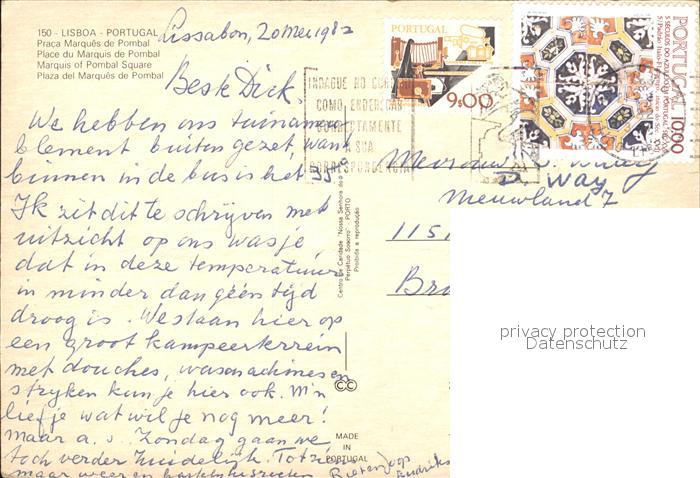 150 - LISBOA - PORTUGAL
Praça Marquês de Pombal
Place du Marquis de Pombal
Marquis of Pombal Square
Plaza del Marqués de Pombal
Lissabon, 20 Mei 1982
Beste Dick,
We hebben ons tuinameu
blement buiten gezet, want
binnen in de bus is het
Ik zit dit te schrijven met
uitzicht op ons wasje
dat in deze temperatuur
in minder dan géén tijd
droog is. We staan hier op
een groot kampeerterrein
met douches, wasmachines en
strijken kun je hier ook. M'n
liefje wat wil je nog meer!
Maar a.s. Zondag gaan we
toch verder Zuidelijk. Tot ziens
maar weer en hartelijke groeten
Riet en Joop
PORTUGAL
9$00
PORTUGAL 10$00
5 SÉCULOS DO AZULEJO EM PORTUGAL
INDAGUE NO
COMO ENDEREÇAR
CORRECTAMENTE
A SUA
CORRESPONDÊNCIA
Mevrouw
D. Way
Nieuwland 7
115
Bro
Centro de Caridade "Nossa Senhora do
Perpétuo Socorro" - PORTO
Proibida a reprodução
MADE
IN
PORTUGAL
privacy protection
Datenschutz